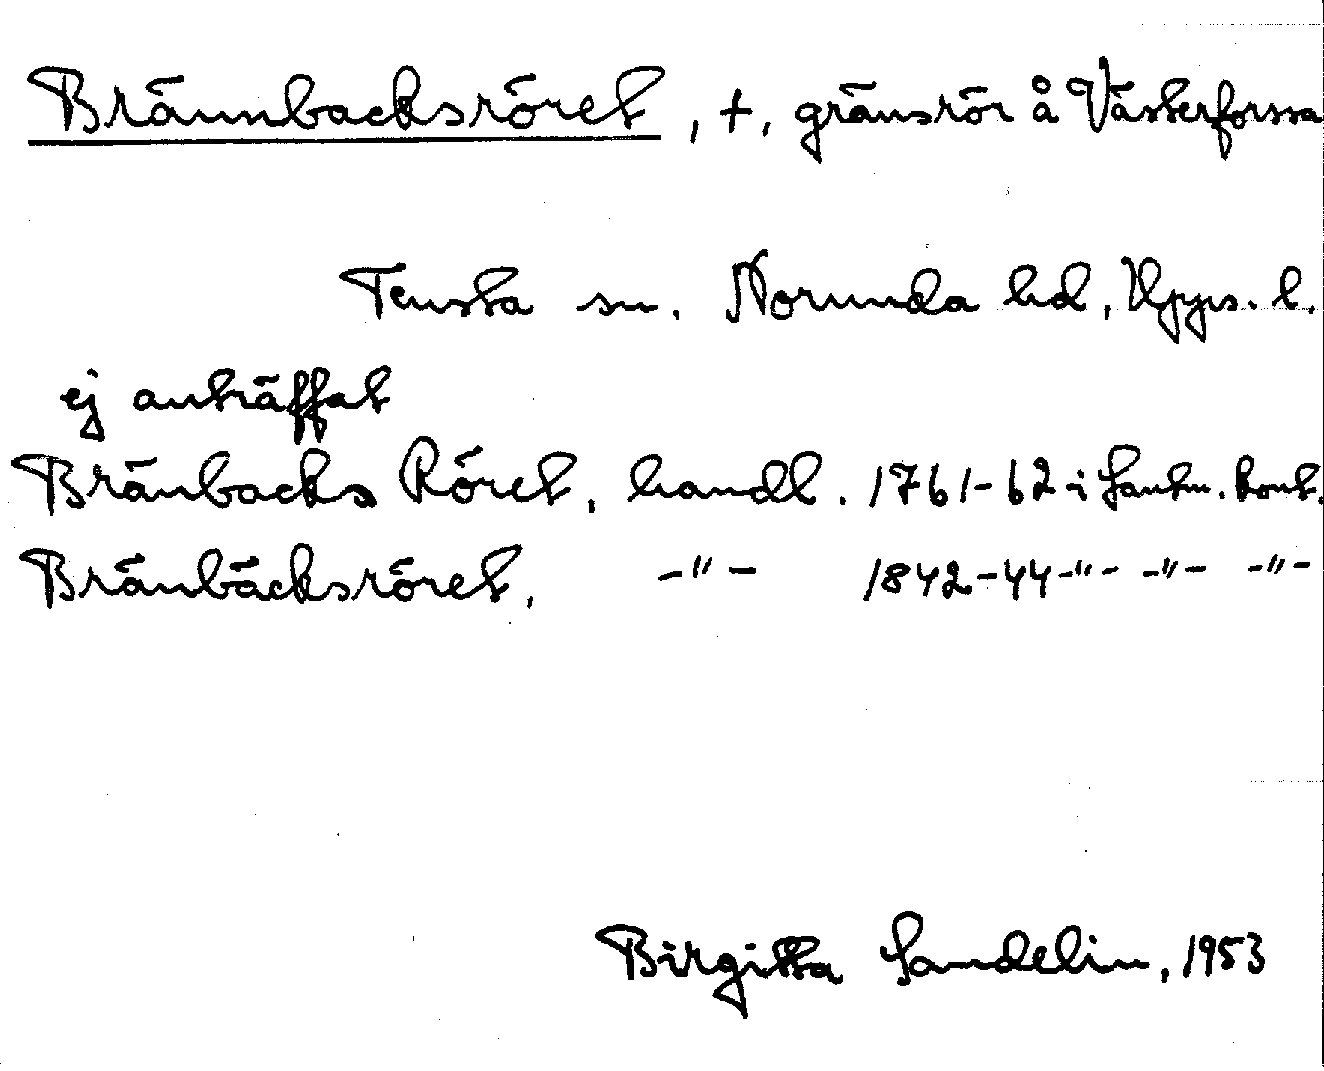 Brännbacksröret, +, gränsrör å Västerforssa
Tensta sn. Norunda hd, Upps. l.
ej anträffat
Bränbacks Röret, handl. 1761-62 i Lantm. kont.
Bränbäcksröret, -"- 1842-44 -"- -"- -"-
Birgitta Sandelin, 1953